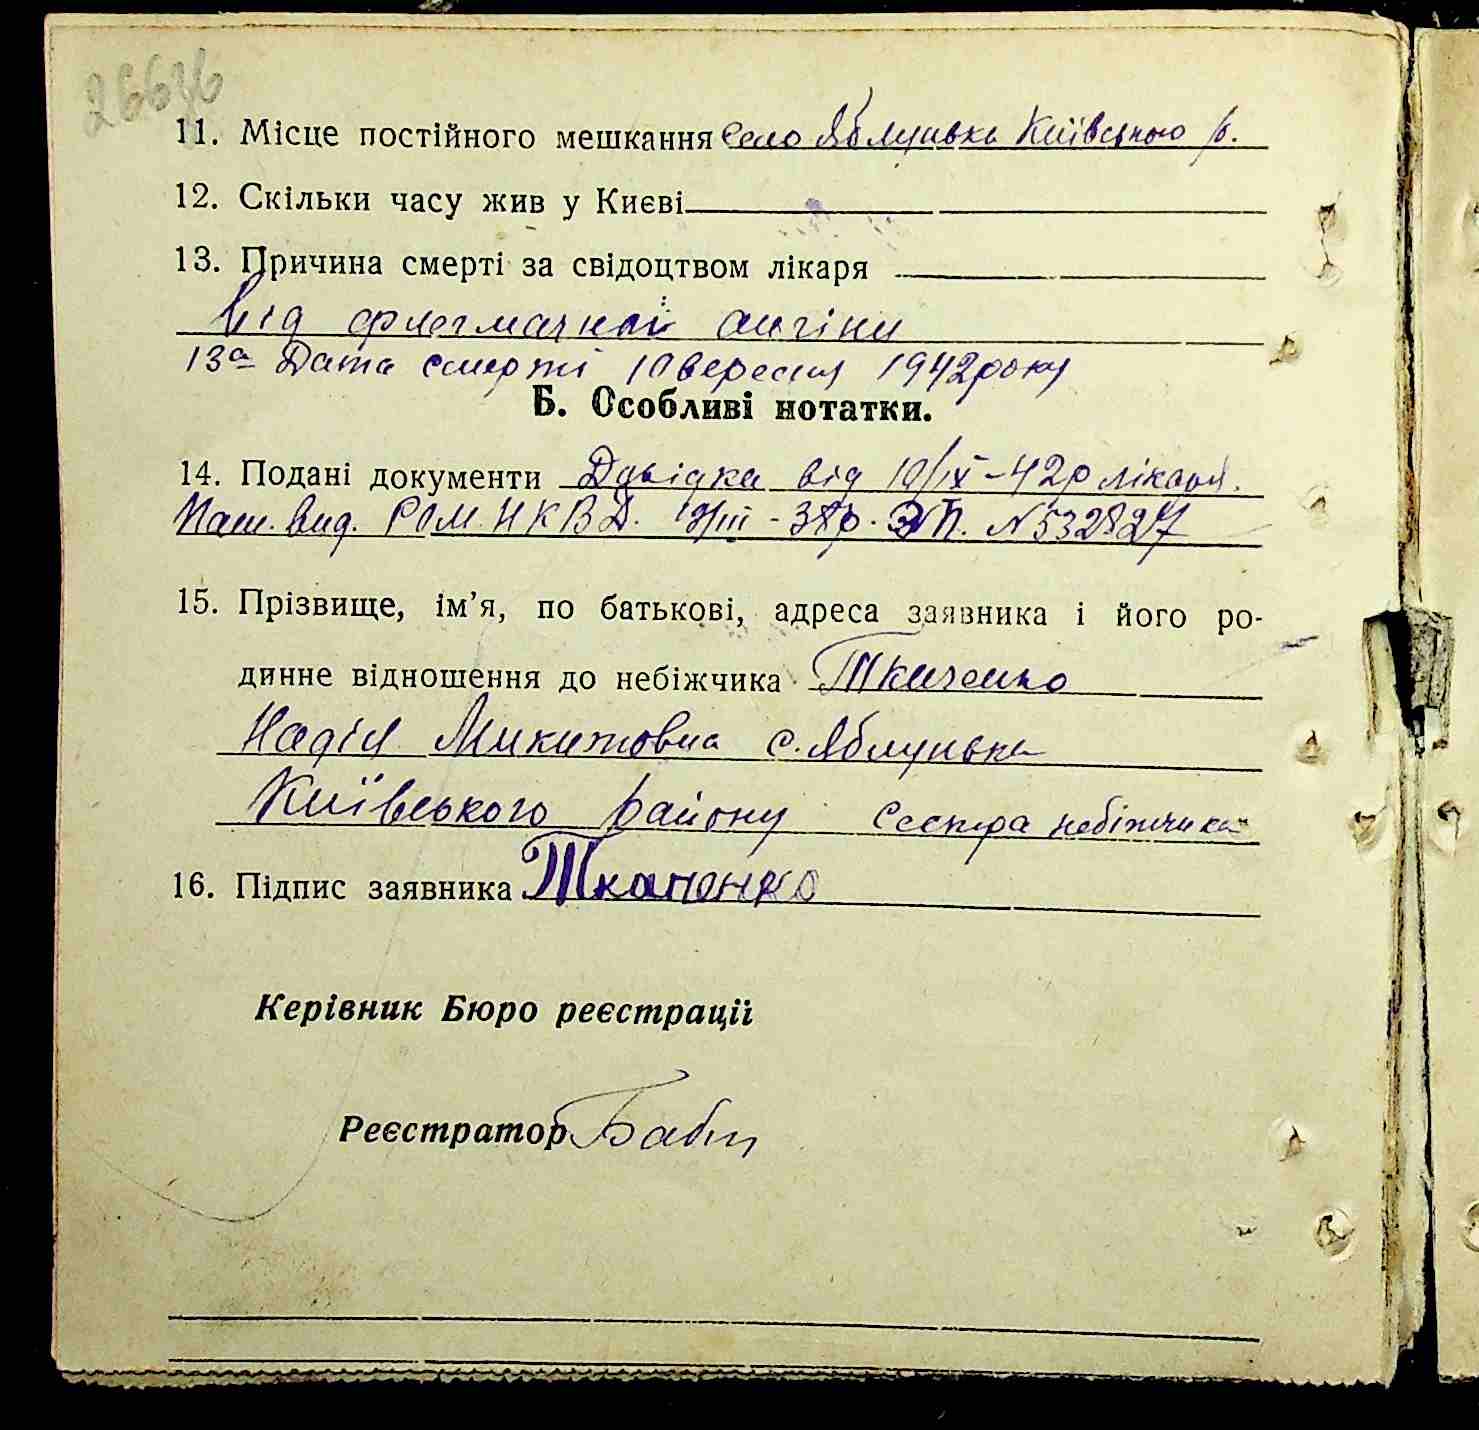 11. Місце постійного мешкання село Яблунька Київського р.
12. Скільки часу жив у Києві
13. Причина смерті за свідоцтвом лікаря
від флегмачной ангіни
13а Дата смерті 10 вересня 1942 року
Б. Особливі нотатки.
14. Подані документи Довідка від 10/IX-42р лікаря.
Паш. вид. РОМ. НКВД. /III - П. N 532827
15. Прізвище, ім’я, по батькові, адреса заявника і його ро-
динне відношення до небіжчика Ткаченко
Надія Микитовна с. Яблунька
Київського району сестра небіжчика
16. Підпис заявника Ткаченко
Керівник Бюро реєстрації
Реєстратор